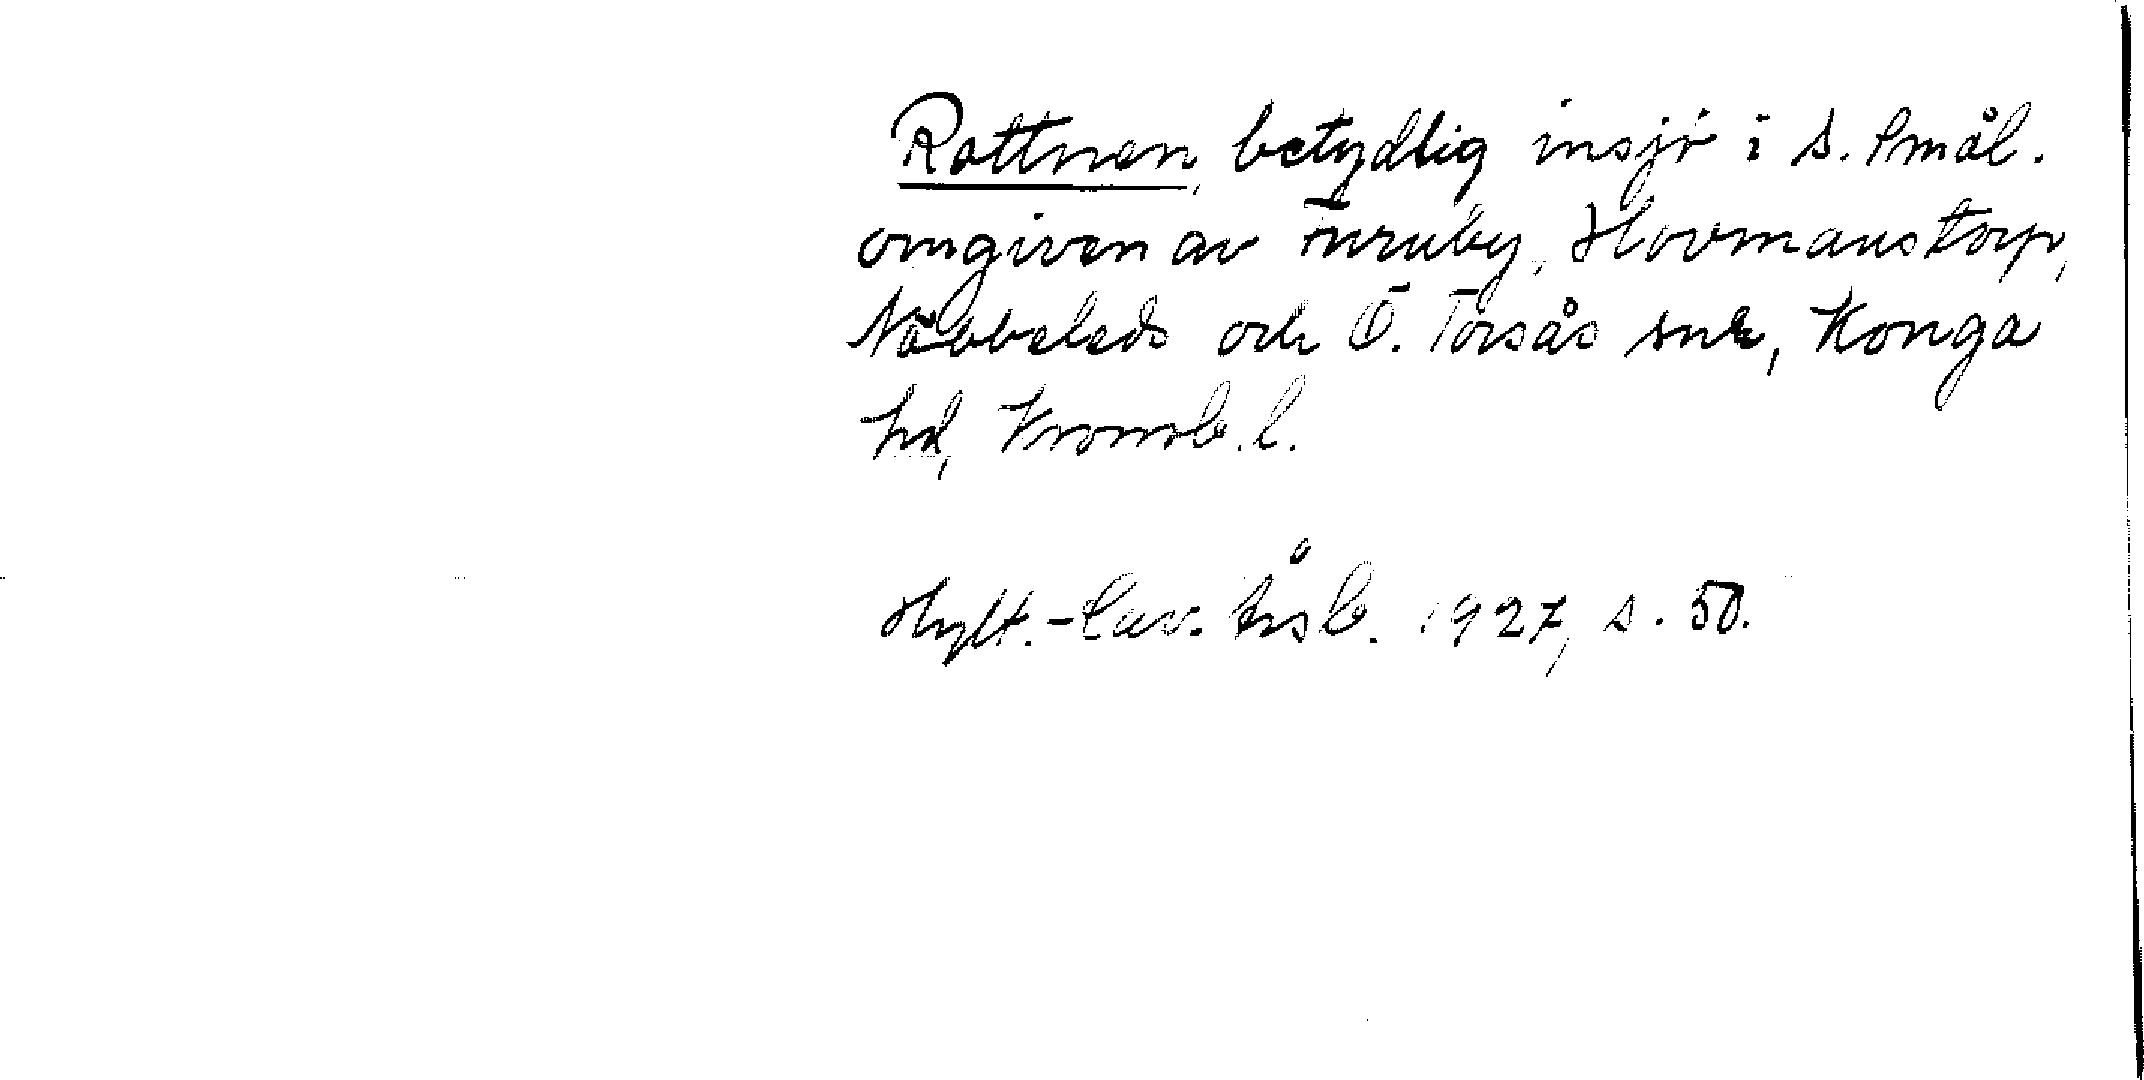 Rottnen, betydlig insjö i s. Smål.
omgiven av Furuby, Hovmanstorp,
Näbbeleds och Ö. Torsås snr, Konga
hd, Kronob. l.
Hylt.-Cav. Årsb. 1927, s. 50.